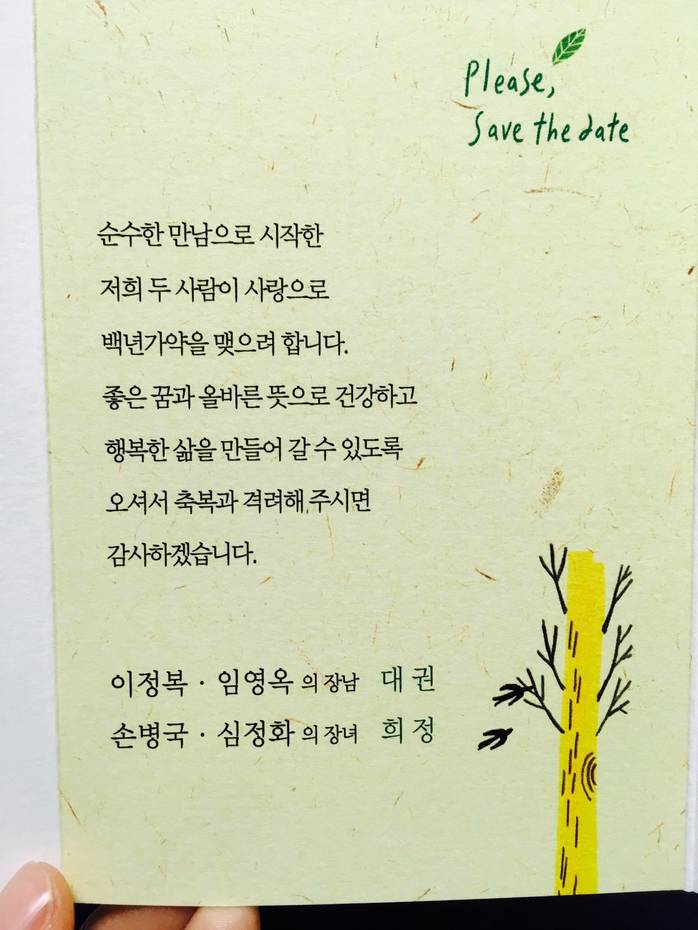 Please,
Save the date
순수한 만남으로 시작한
저희 두 사람이 사랑으로
백년가약을 맺으려 합니다.
좋은 꿈과 올바른 뜻으로 건강하고
행복한 삶을 만들어 갈 수 있도록
오셔서 축복과 격려해 주시면
감사하겠습니다.
이정복 · 임영옥 의 장남 대권
손병국 · 심정화 의 장녀 희정